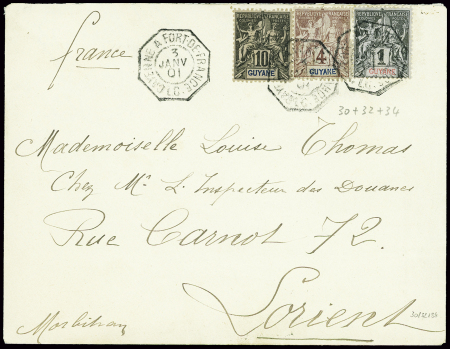 france
CAYENNE A FORT DE FRANCE
3
JANV
01
RÉPUBLIQUE FRANÇAISE
10
GUYANE
RÉPUBLIQUE FRANÇAISE
4
GUYANE
RÉPUBLIQUE FRANÇAISE
1
GUYANE
30+32+34
Mademoiselle Louise Thomas
Chez Mr L. Inspecteur des Douanes
Rue Carnot 72.
Lorient
Morbihan